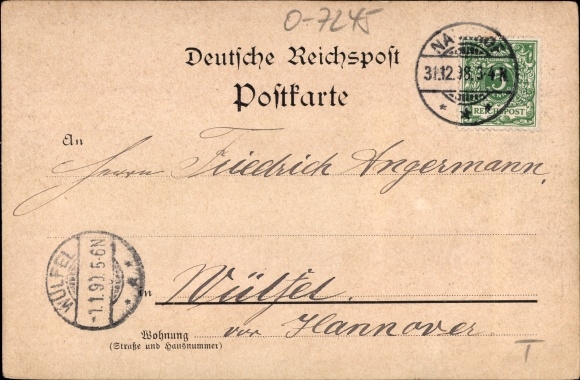 0-7245
Deutsche Reichspost
Postkarte
31.12.98. 3-4 N
5
REICHSPOST
An
Herrn Friedrich Angermann,
WÜLFEL
-1.1.99. 5-6N
in Wülfel.
vor Hannover.
Wohnung
(Straße und Hausnummer)
T